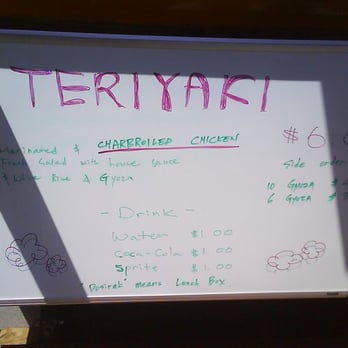 TERIYAKI
Marinated & CHARBROILED CHICKEN $6
Fresh Salad with house sauce
& White Rice & Gyoza
side order
10 GYOZA $
6 GYOZA $
- Drink -
Water $1.00
Coca-Cola $1.00
Sprite $1.00
"Dosirak" means Lunch Box.